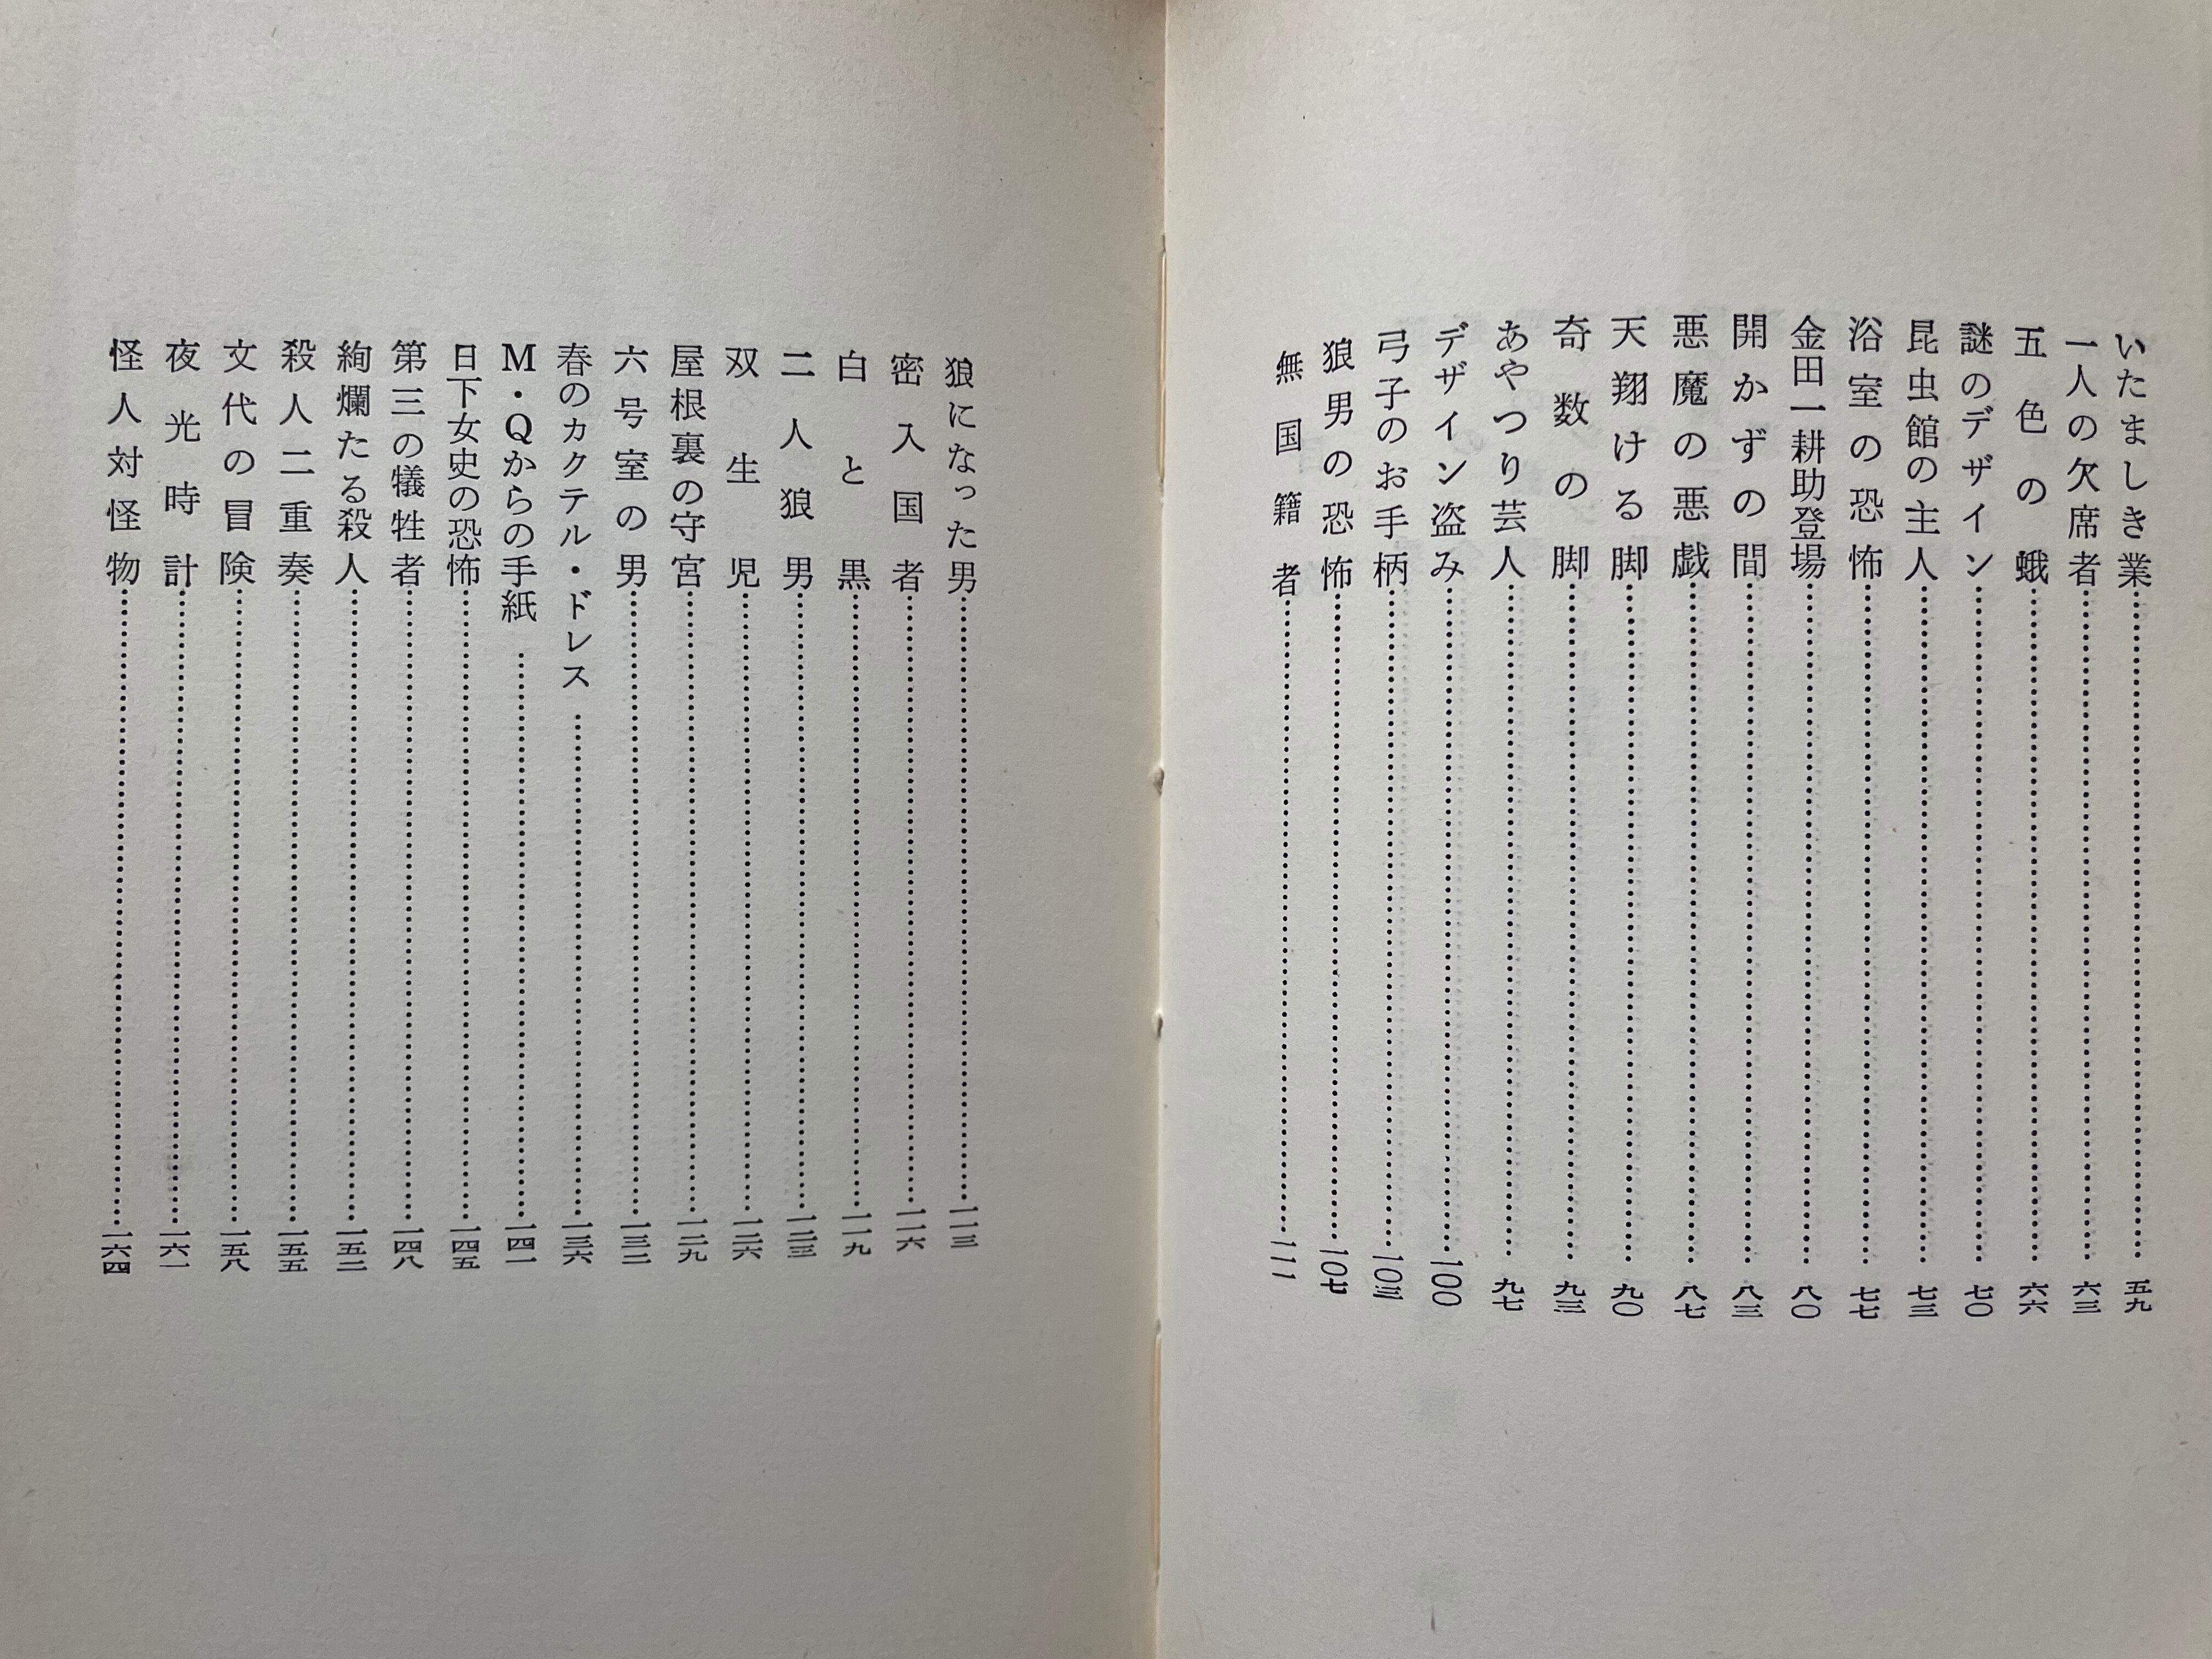 いたましき業…………五九
一人の欠席者…………六三
五色の蛾…………六六
謎のデザイン…………七〇
昆虫館の主人…………七三
金田一耕助登場…………八〇
浴室の恐怖…………七七
開かずの間…………八三
悪魔の悪戯…………八七
天翔ける脚…………九〇
奇数の脚…………九三
あやつり芸人…………九七
デザイン盗み…………一〇〇
弓子のお手柄…………一〇三
狼男の恐怖…………一〇七
無国籍者…………一一一
狼になった男…………一一三
密入国者…………一一六
白と黒…………一一九
二人狼男…………一二三
双生児…………一二六
屋根裏の守宮…………一二九
六号室の男…………一三二
春のカクテル・ドレス…………一三六
M・Qからの手紙…………一四一
日下女史の恐怖…………一四五
第三の犠牲者…………一四八
絢爛たる殺人…………一五二
殺人二重奏…………一五五
文代の冒険…………一五八
夜光時計…………一六一
怪人対怪物…………一六四